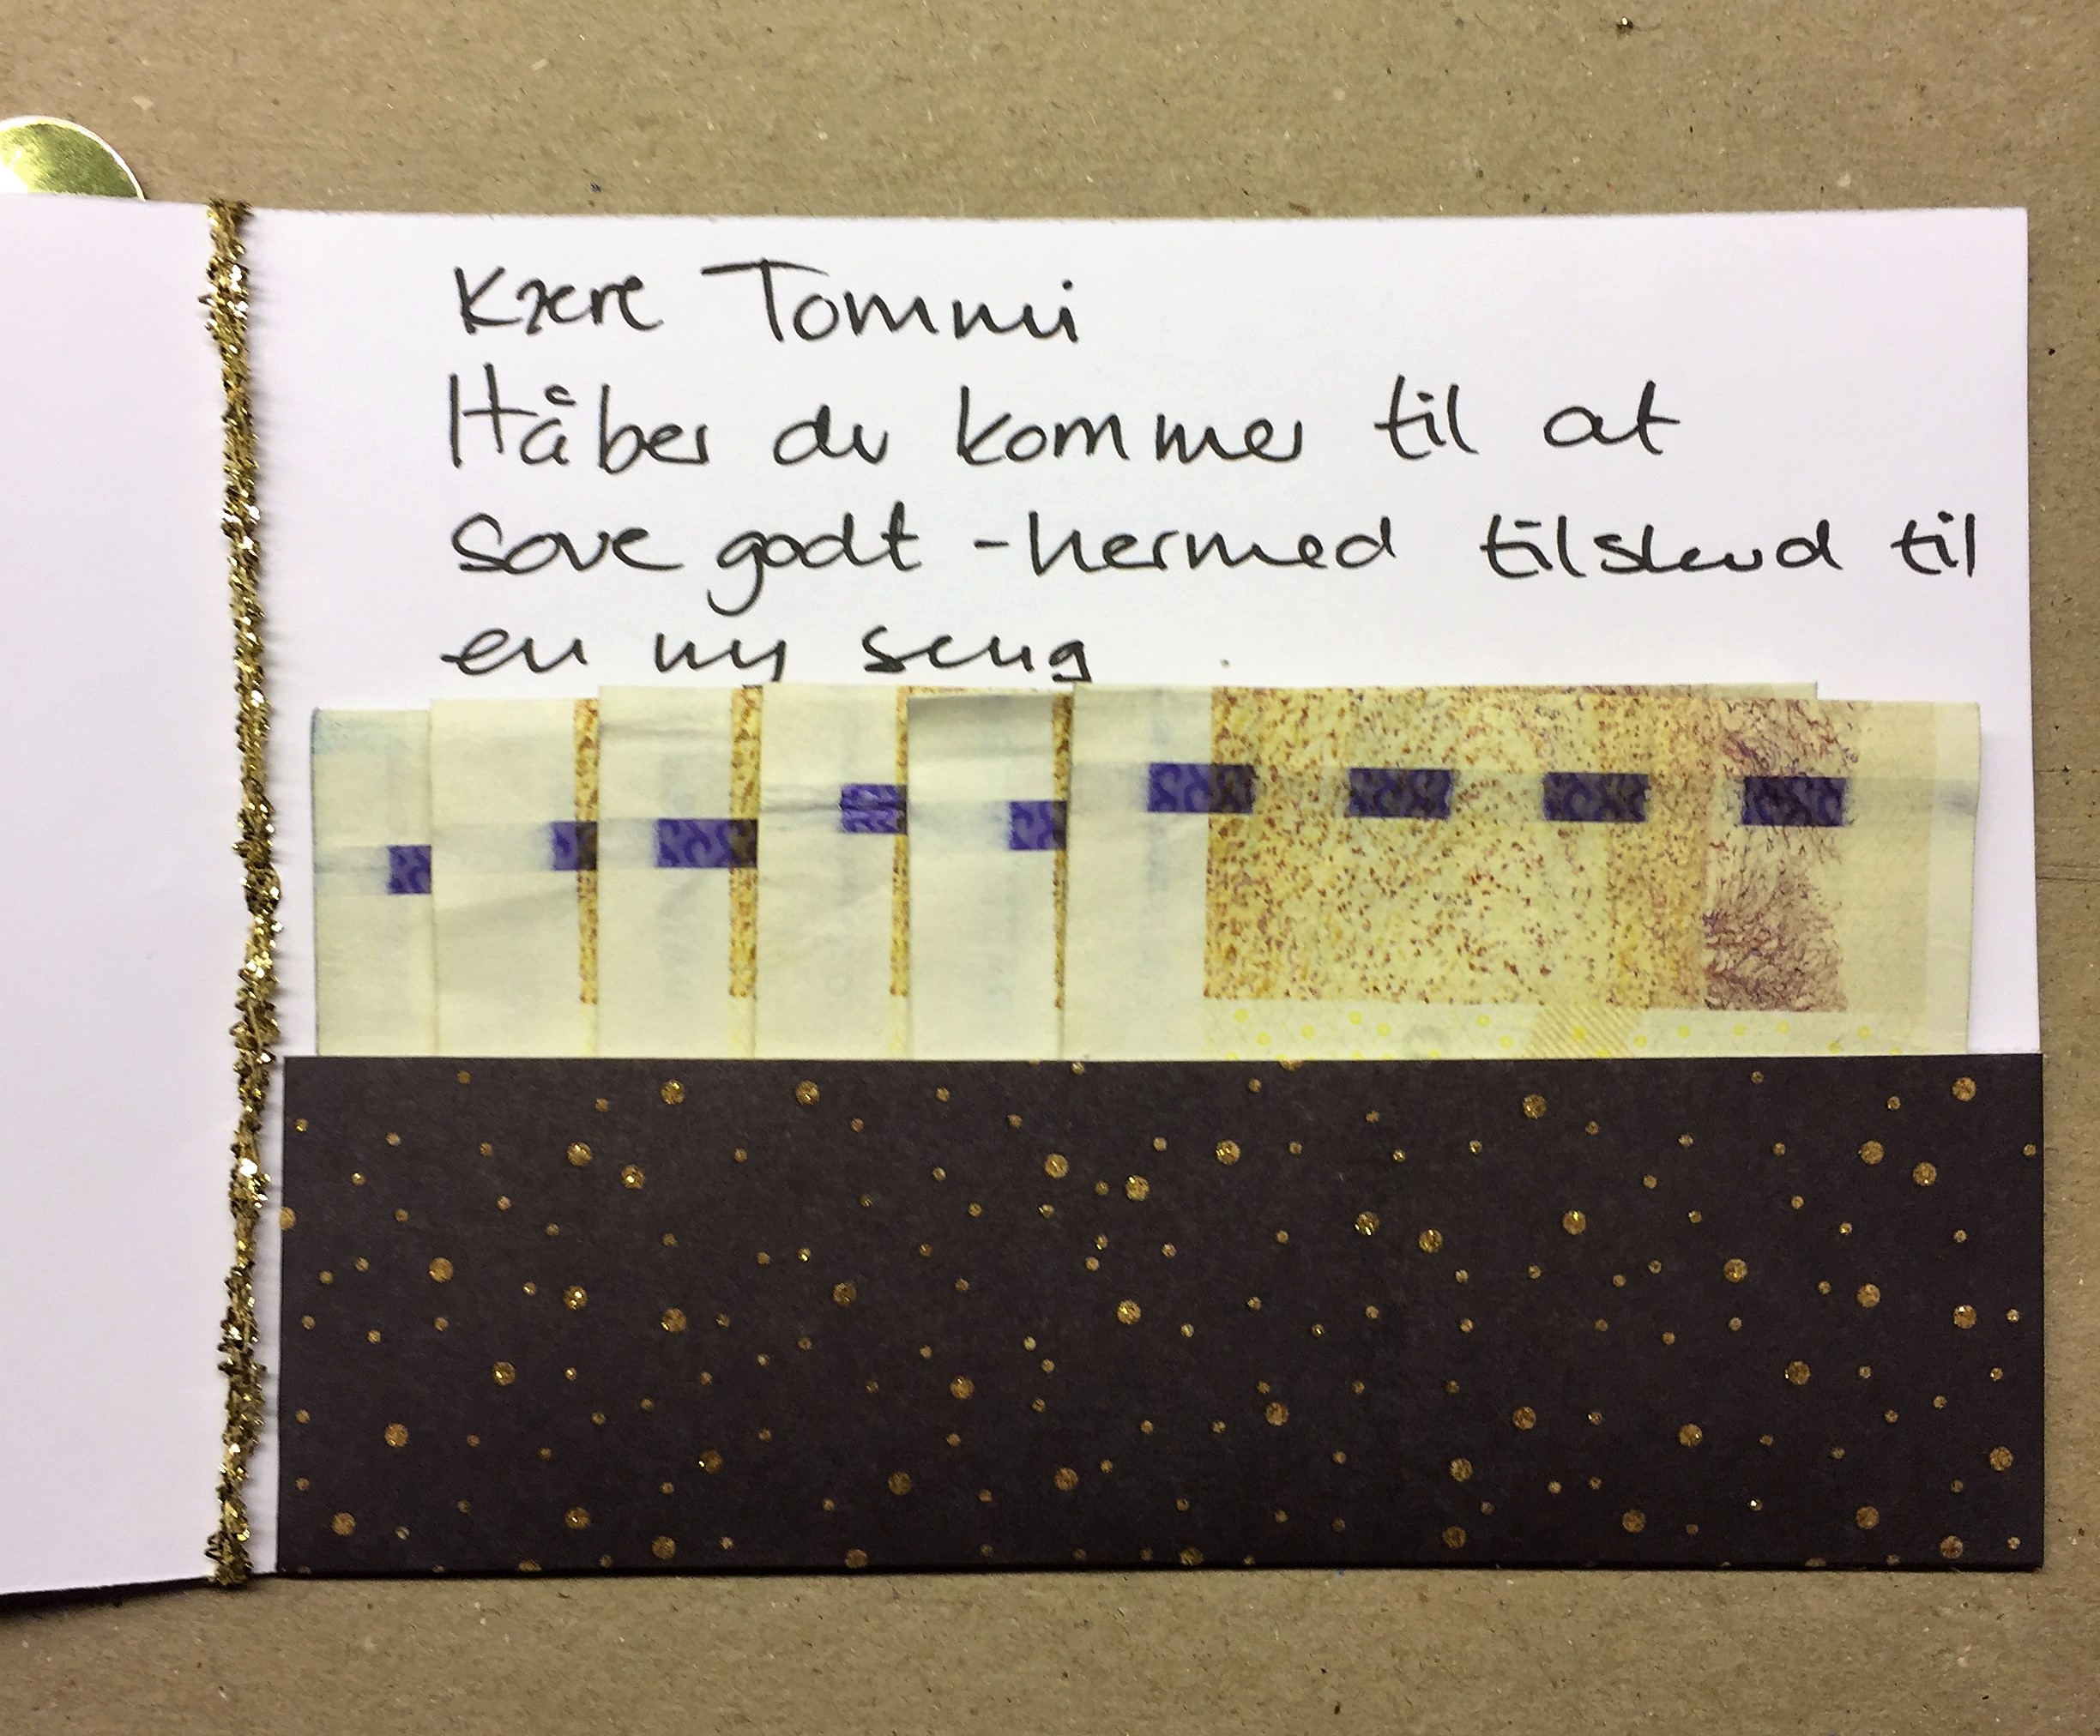 Kære Tommi
Håber du kommer til at
sove godt - hermed tilskud til
en ny seng